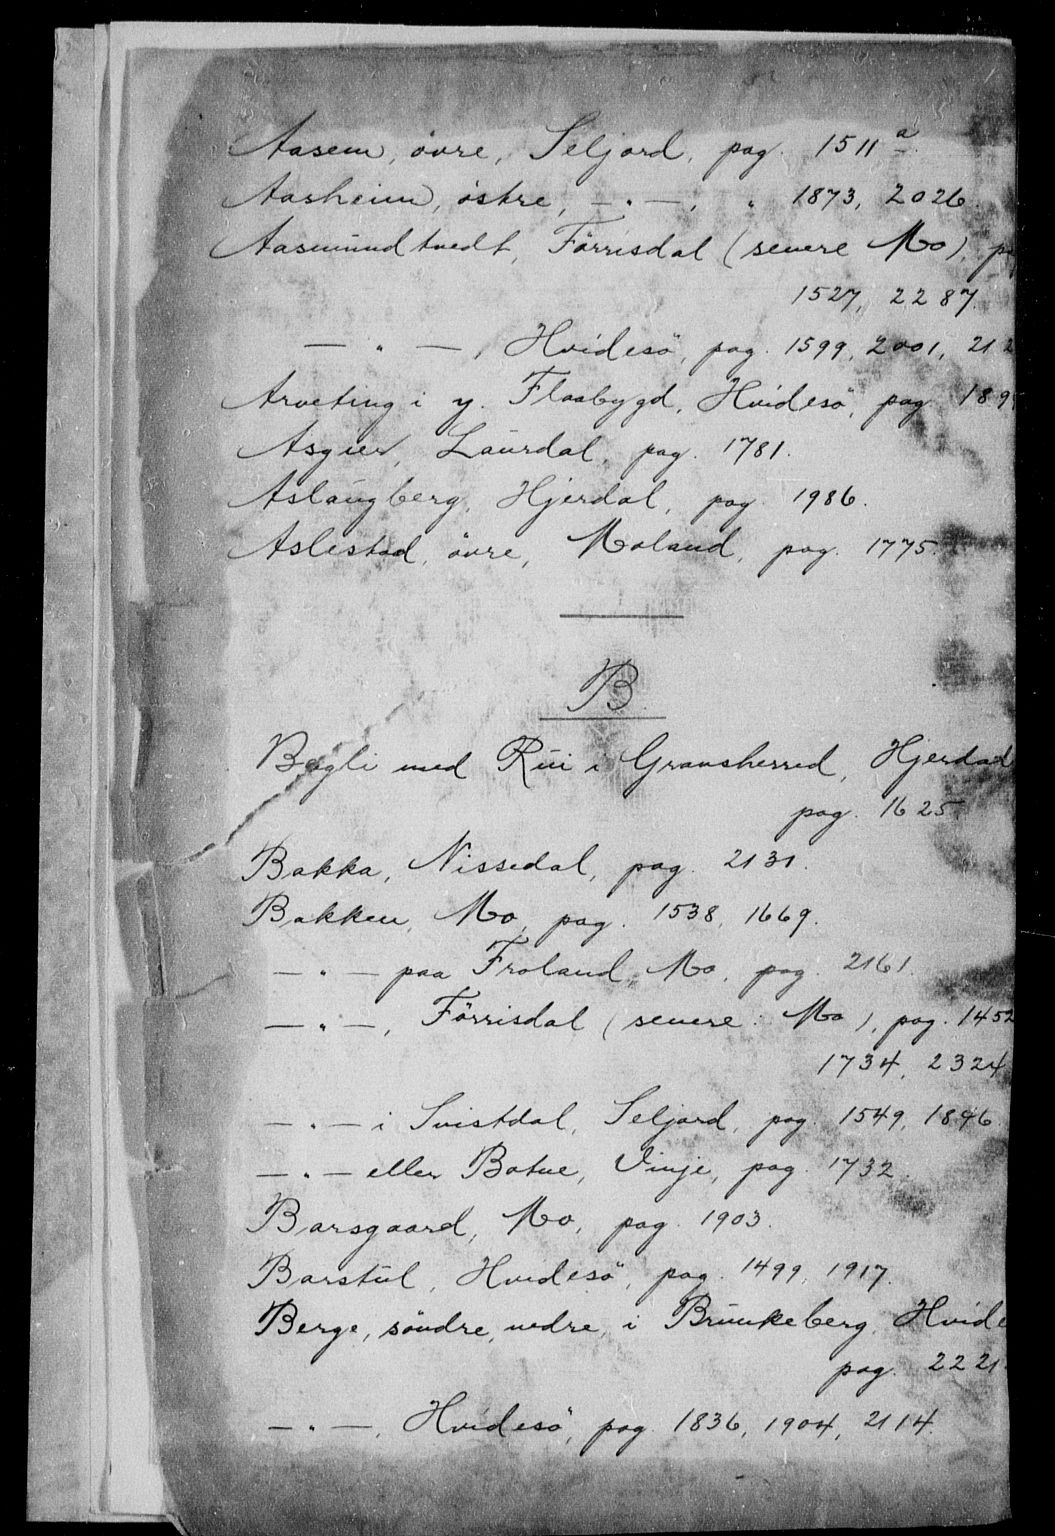 Aasem, övre, Seljord, pag. 1511 a.
Aasheim, östre, — " —, " 1873, 2026.
Aasmundtvedt, Förrisdal (senere Mo),
1527, 2287.
— " —, Hvidesö, pag. 1599, 2001, 212
Arveting i y. Flaabygd, Hvidesö, pag. 189
Asgier, Laurdal, pag. 1781.
Aslaugberg, Hjerdal, pag. 1986.
Aslestad, övre, Moland, pag. 1775.
B.
Bagli med Rui i Gransherred, Hjerdal
pag. 1625.
Bakka, Nissedal, pag. 2131.
Bakken, Mo, pag. 1538, 1669.
— " — paa Froland, Mo, pag. 2161.
— " —, Förrisdal (senere Mo), pag. 1452
1734, 2324
— " — i Svistdal, Seljord, pag. 1549, 1896.
— " — eller Botne, Vinje, pag. 1732.
Barsgaard, Mo, pag. 1903.
Barstul, Hvidesö, pag. 1499, 1917.
Berge, söndre, nedre, i Brunkeberg, Hvide
pag. 2221.
— " —, Hvidesö, pag. 1836, 1904, 2114.